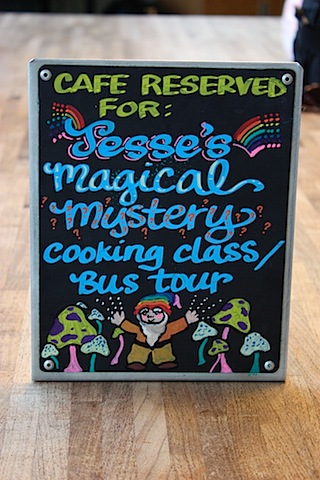 CAFE RESERVED
FOR:
Jesse's
Magical
Mystery
Cooking class/
Bus tour